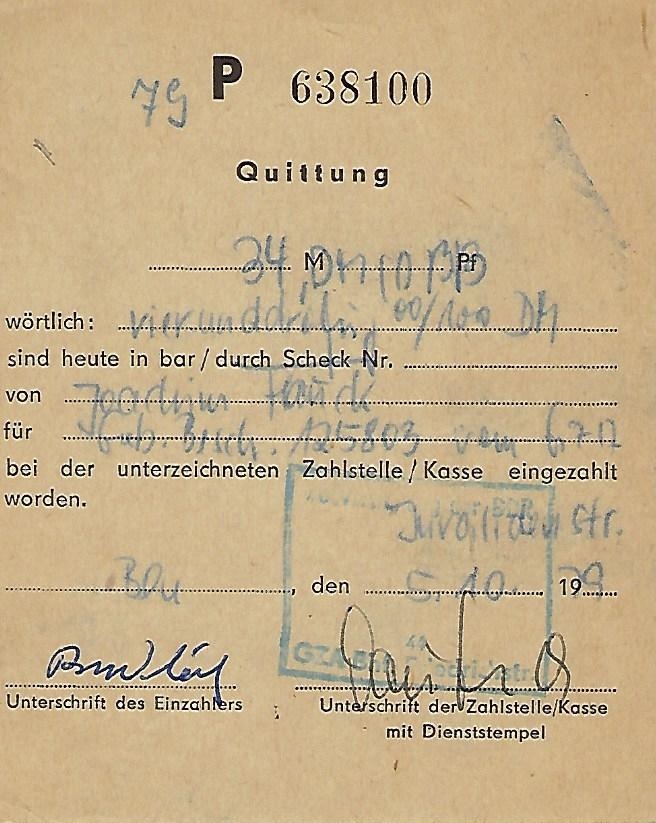 79 P 638100
Quittung
34, M DM (DBB) Pf
wörtlich: vierunddreißig 00/100 DM
sind heute in bar/durch Scheck Nr.
von Joachim
für Geb. Besch. 125803 vom 6.7.
bei der unterzeichneten Zahlstelle/Kasse eingezahlt
worden.
Invalidenstr.
Bln, den 5.10. 1979
GZA
Unterschrift des Einzahlers Unterschrift der Zahlstelle/Kasse
mit Dienststempel